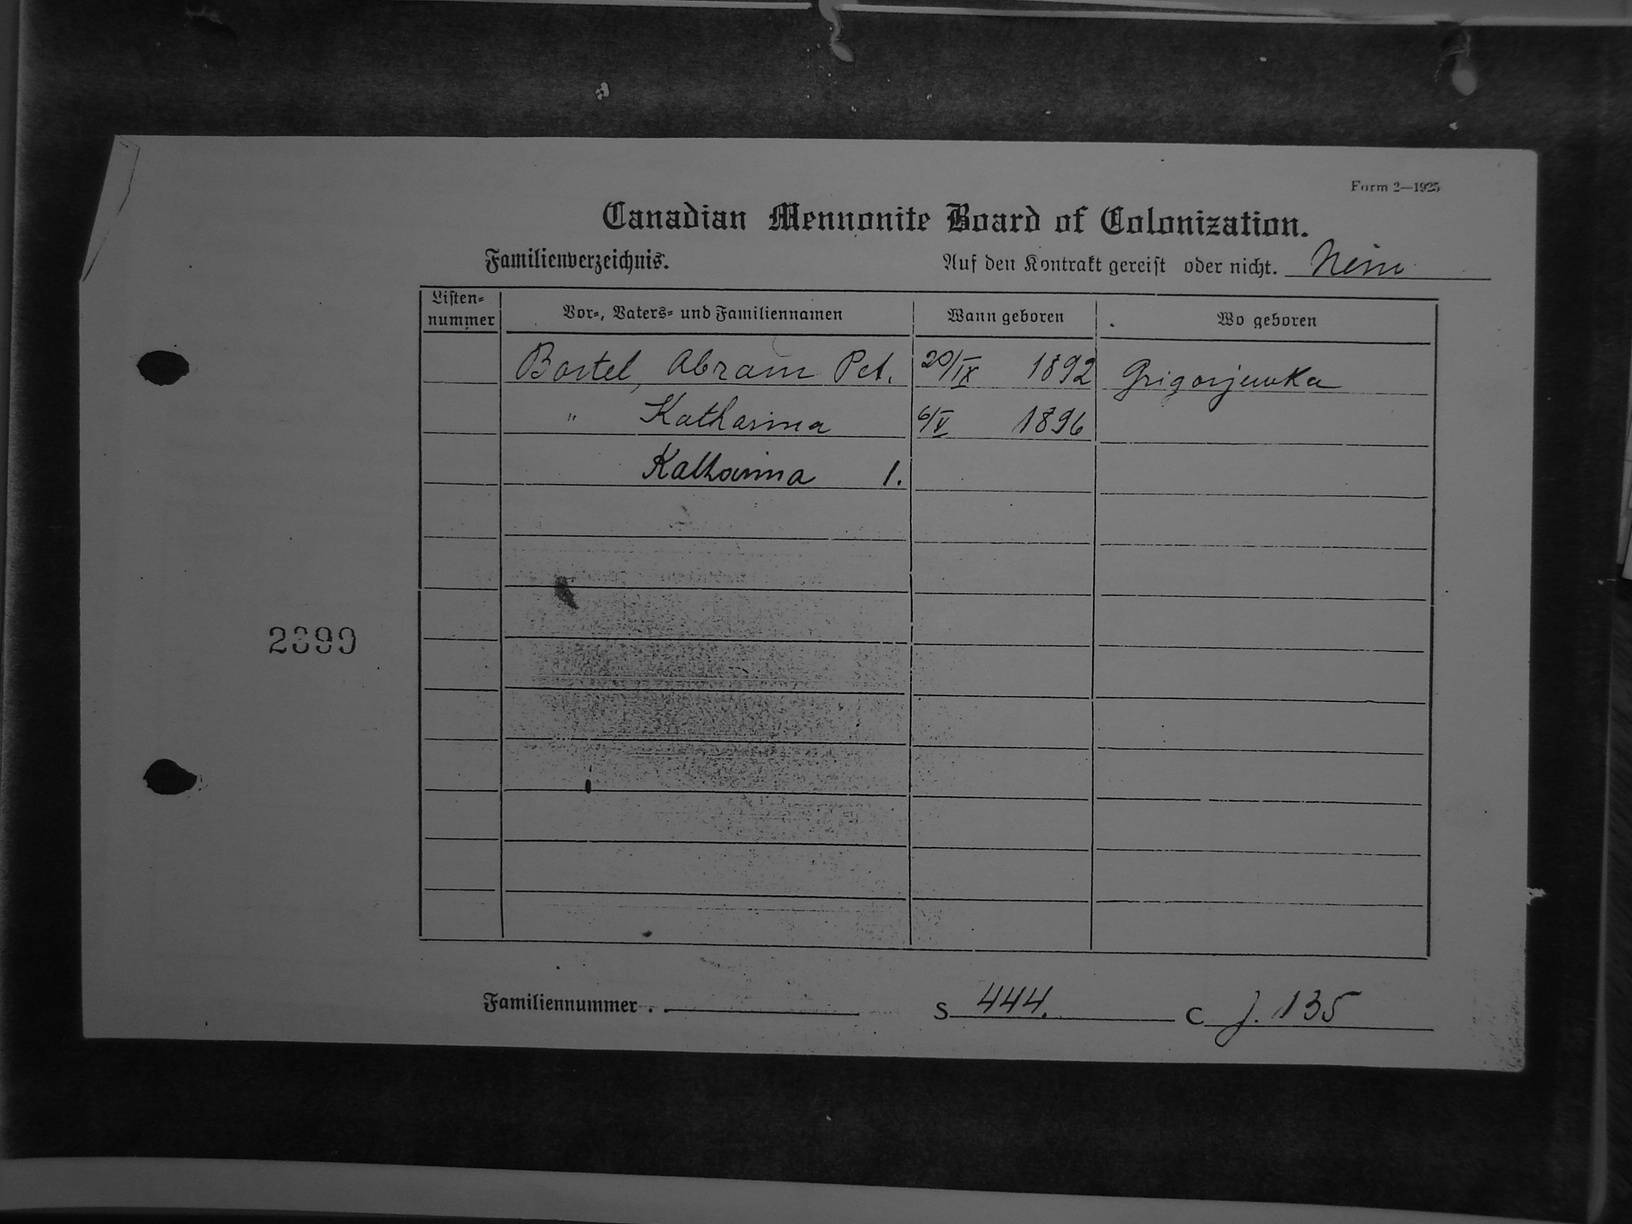 Form 2—1925
Canadian Mennonite Board of Colonization.
Familienverzeichnis. Auf den Kontrakt gereist oder nicht. Nein
Listen-
nummer Vor-, Vaters- und Familiennamen Wann geboren Wo geboren
Bartel, Abram Pet. 20/IX 1892 Grigorjewka
" Katharina 6/V 1896
Katharina 1.
2399
Familiennummer . S 444. C J. 135